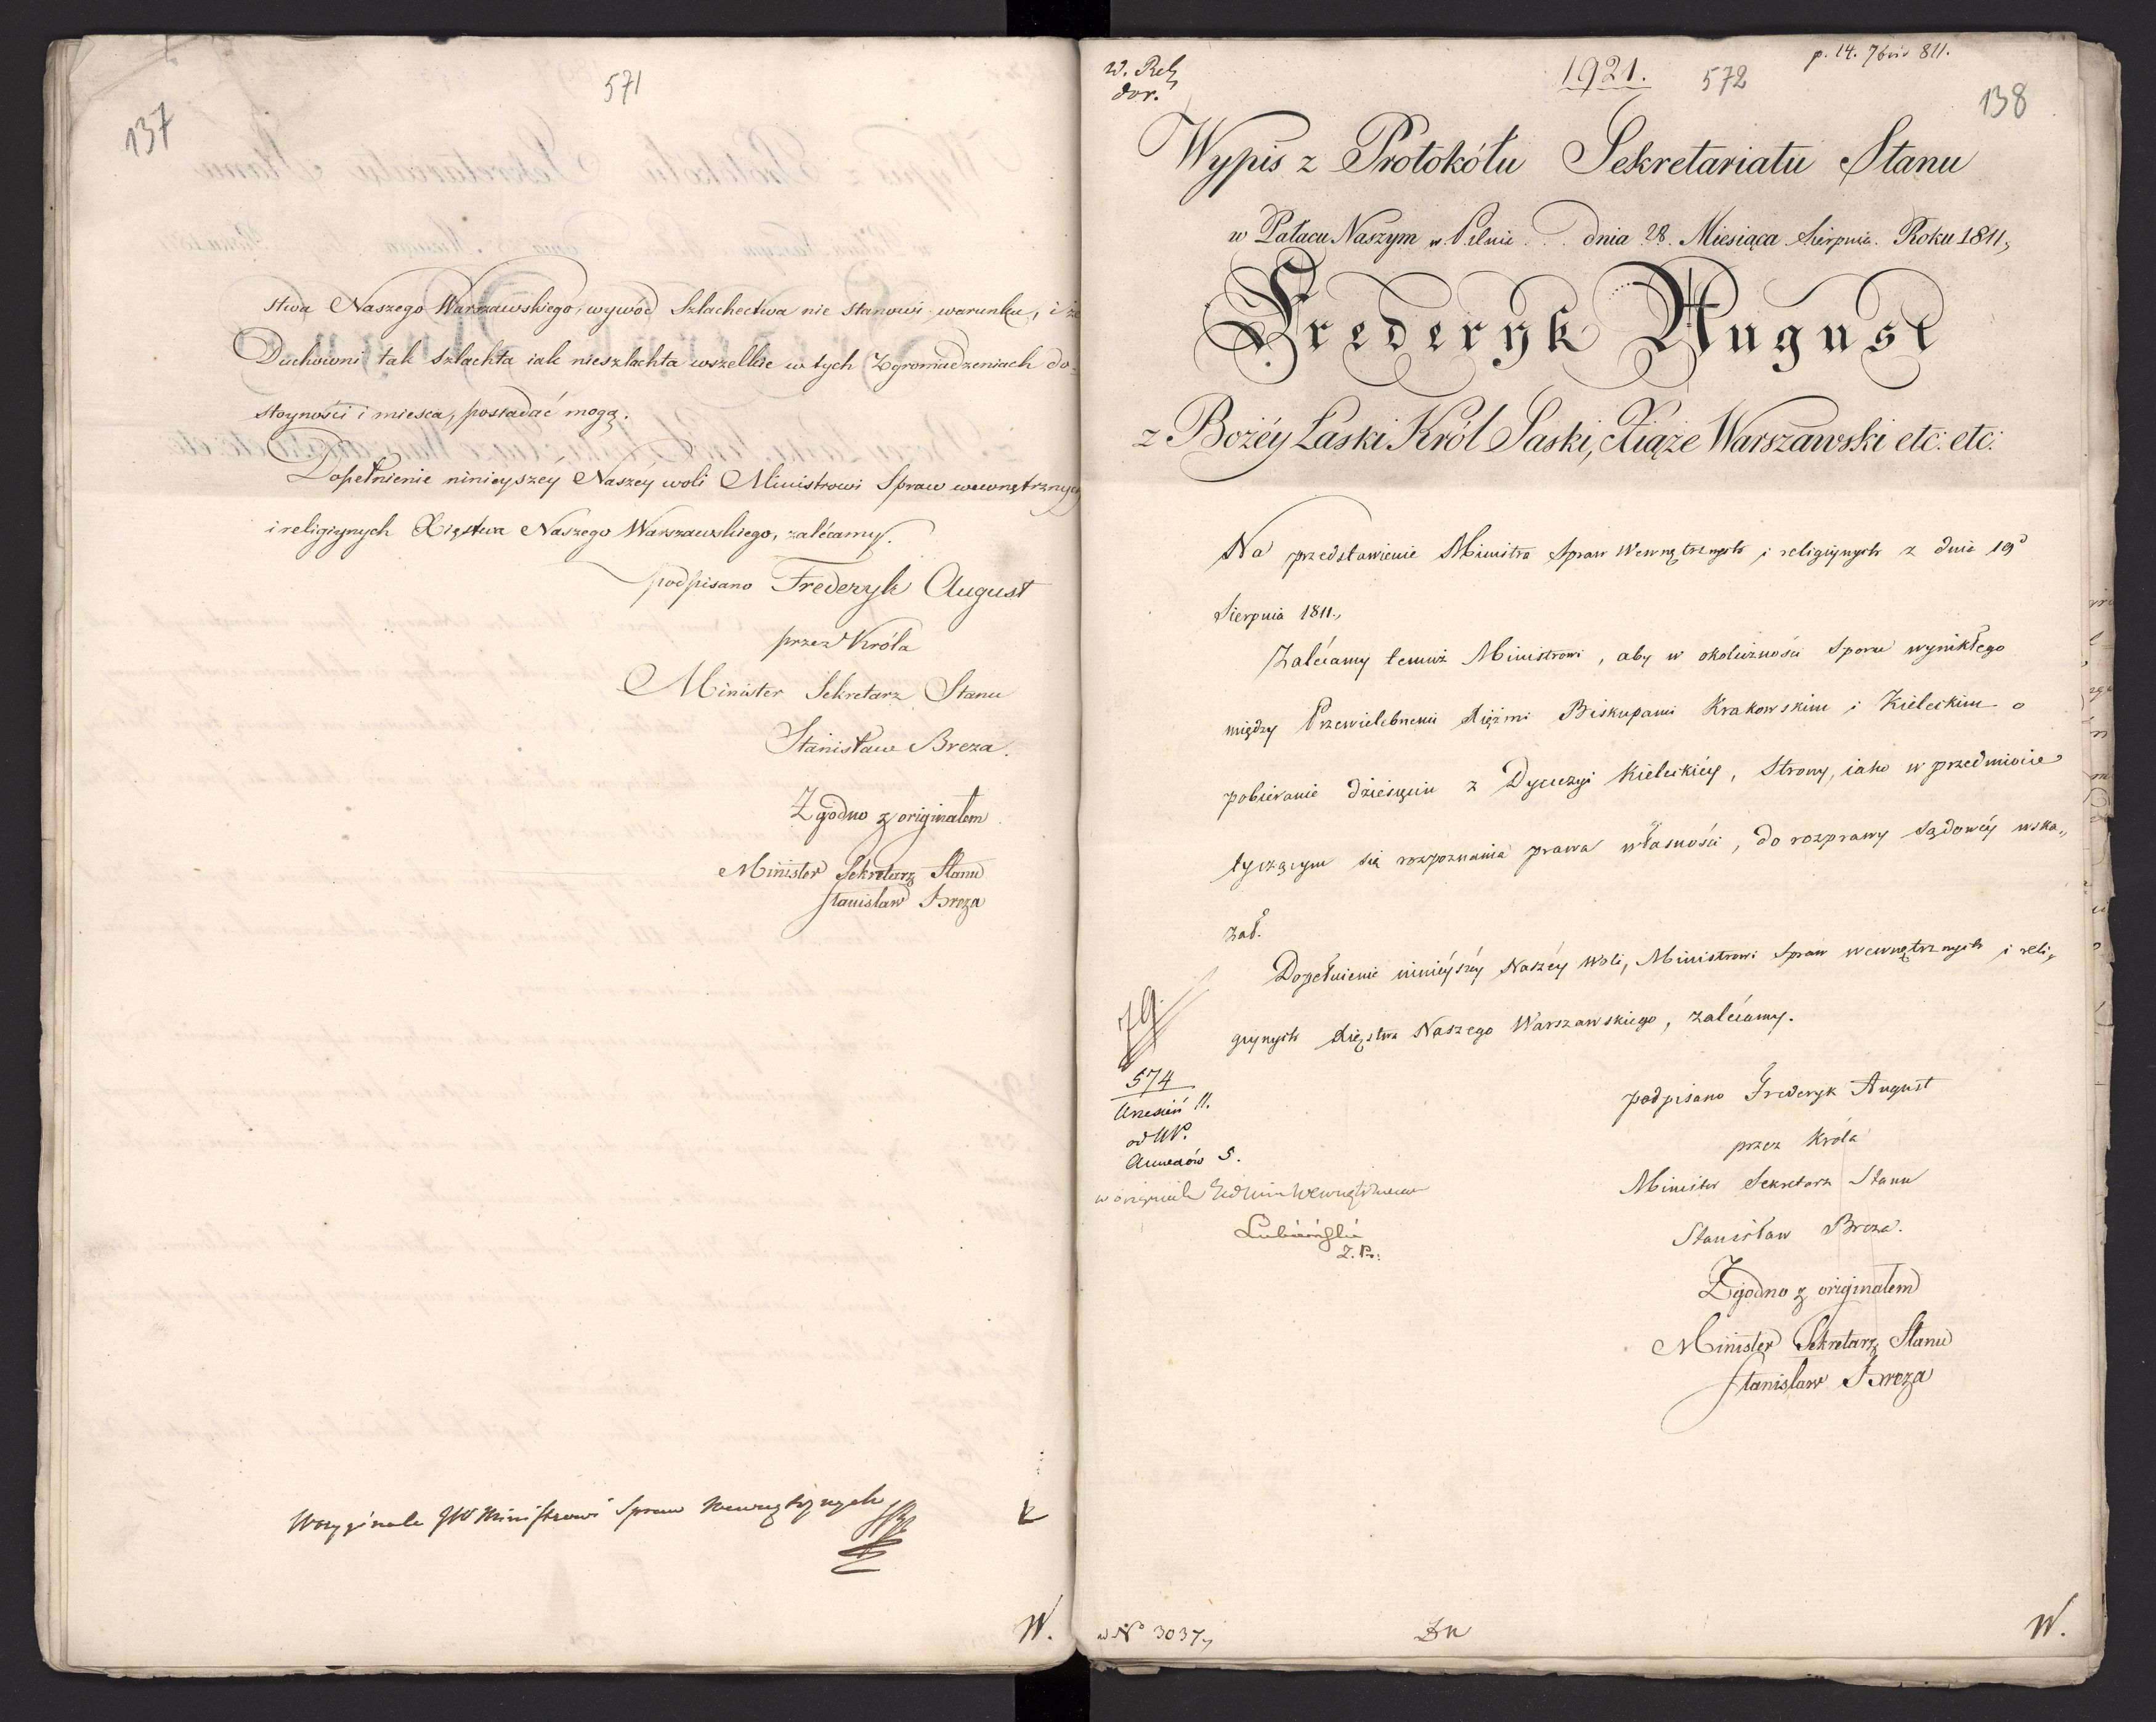 137
571
stwa Naszego Warszawskiego, wywód Szlachectwa nie stanowi warunku, i że
Duchowni tak szlachta iak nieszlachta wszelkie w tych Zgromadzeniach do-
stoyności i miesca, posiadać mogą.
Dopełnienie ninieyszéy Naszéy woli Ministrowi Spraw wewnętrznych
i religiynych Xięstwa Naszego Warszawskiego, zalécamy.
podpisano Frederyk August
przez Króla
Minister Sekretarz Stanu
Stanisław Breza.
Zgodno z originałem
Minister Sekretarz Stanu
Stanisław Breza
W oryginale JW Ministrowi Spraw Wewnętrznych
W.
1921.
572
p. 14. 7bris 811.
138
Wypis z Protokółu Sekretariatu Stanu
w Pałacu Naszym w Pilnic dnia 28. Miesiąca Sierpnia. Roku 1811,
Frederyk August
z Bożéy Łaski Król Saski, Xiąże Warszawski etc: etc:
Na przedstawienie Ministra Spraw Wewnętrznych i religiynych z dnia 19
Sierpnia 1811.,
Zalécamy temuż Ministrowi, aby w okoliczności Sporu wynikłego
między Przewielebnemi Xiężmi Biskupami Krakowskim i Kieleckim o
pobieranie dziesięcin z Dyecezyi Kieleckiéy, Strony, iako w przedmiocie
tyczącym się rozpoznania prawa własności, do rozprawy Sądowéy wska„
zał.
Dopełnienie ninieyszéy Naszéy Woli, Ministrowi Spraw wewnętrznych i reli„
giynych Xięstwa Naszego Warszawskiego, zalécamy.
79
574
Annexów 5.
podpisano Frederyk August
przez Króla
Minister Sekretarz Stanu
Stanisław Breza.
Zgodno z originałem
Minister Sekretarz Stanu
Stanisław Breza
w No 3037,
W.